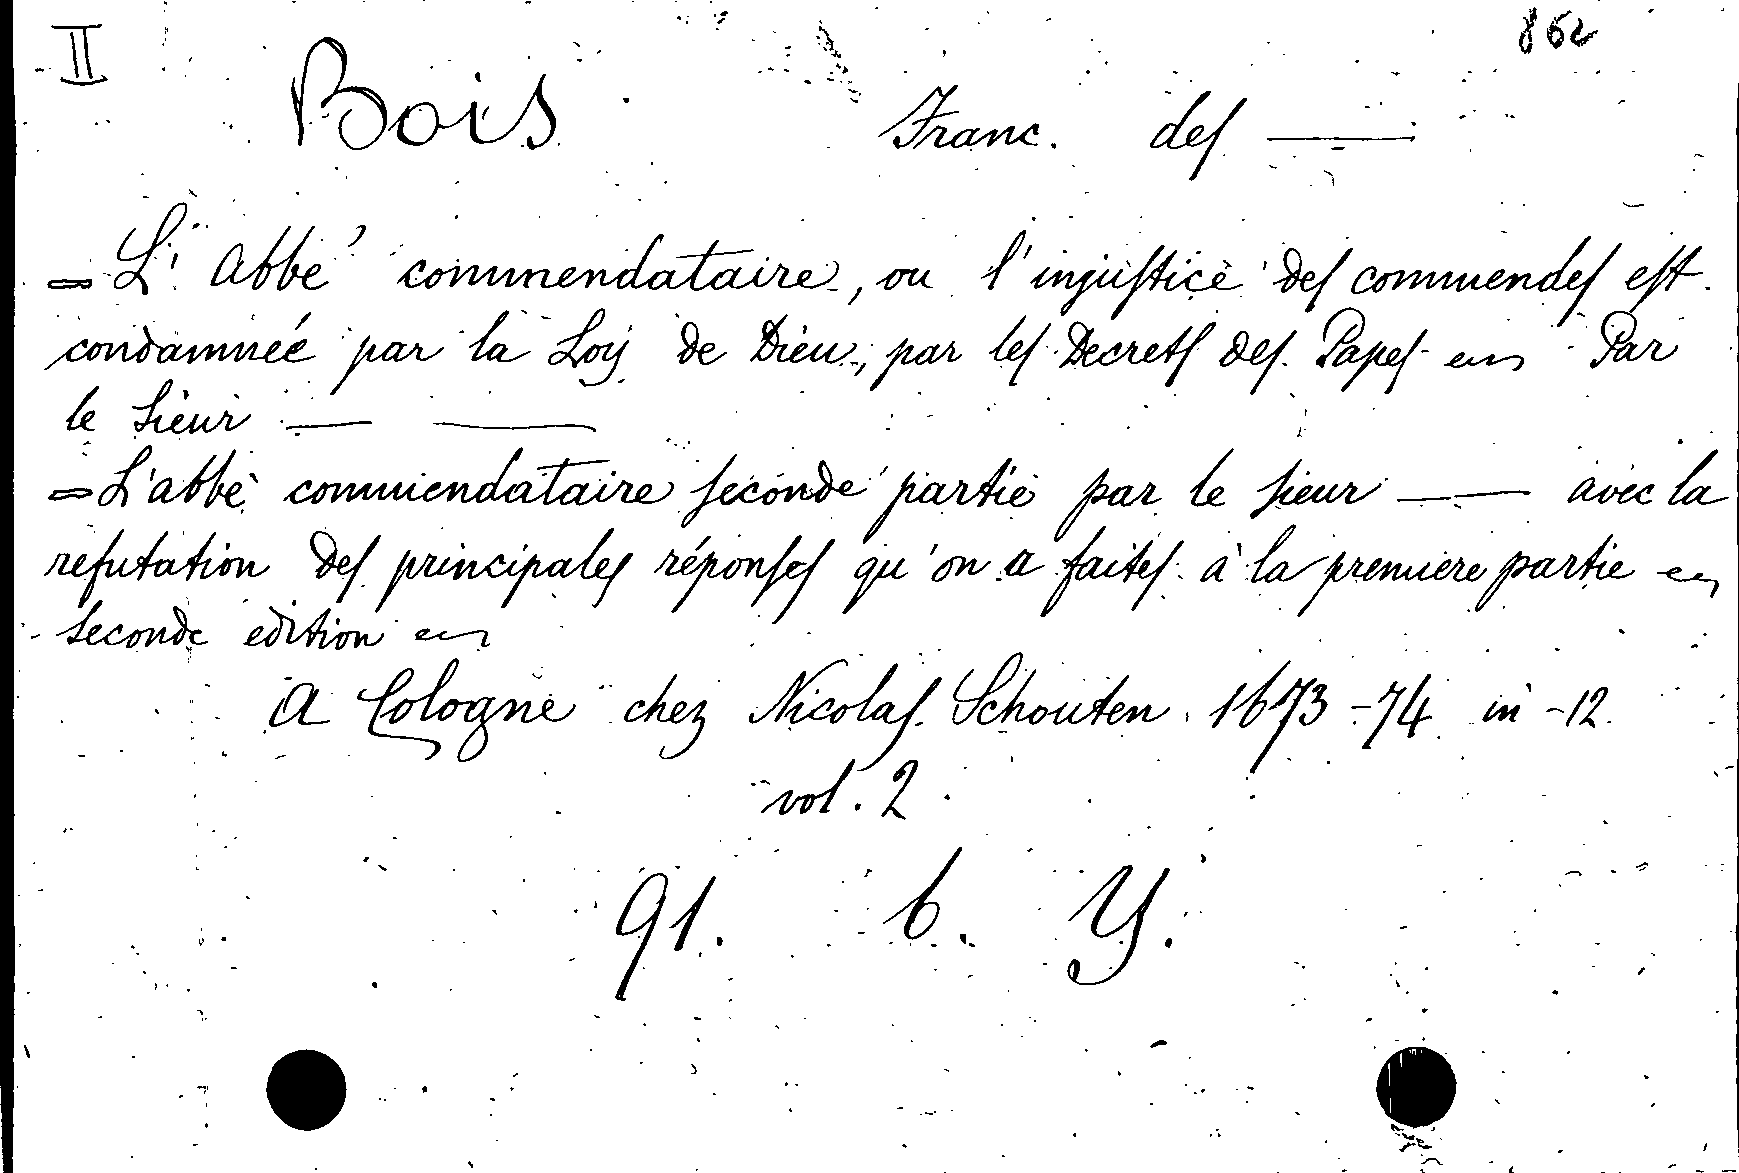 II 862
Bois Franc. des ———
= L'Abbé commendataire, ou l'injustice des commendes est
condamnée par la Loy de Dieu, par les Decrets des Papes Par
le Sieur — ———
= L'abbé commendataire seconde partie par le sieur —— avec la
refutation des principales réponses qu'on a faites à la premiere partie
seconde edition
A Cologne chez Nicolas Schouten 1673-74 in-12
vol. 2
91. b. Y.